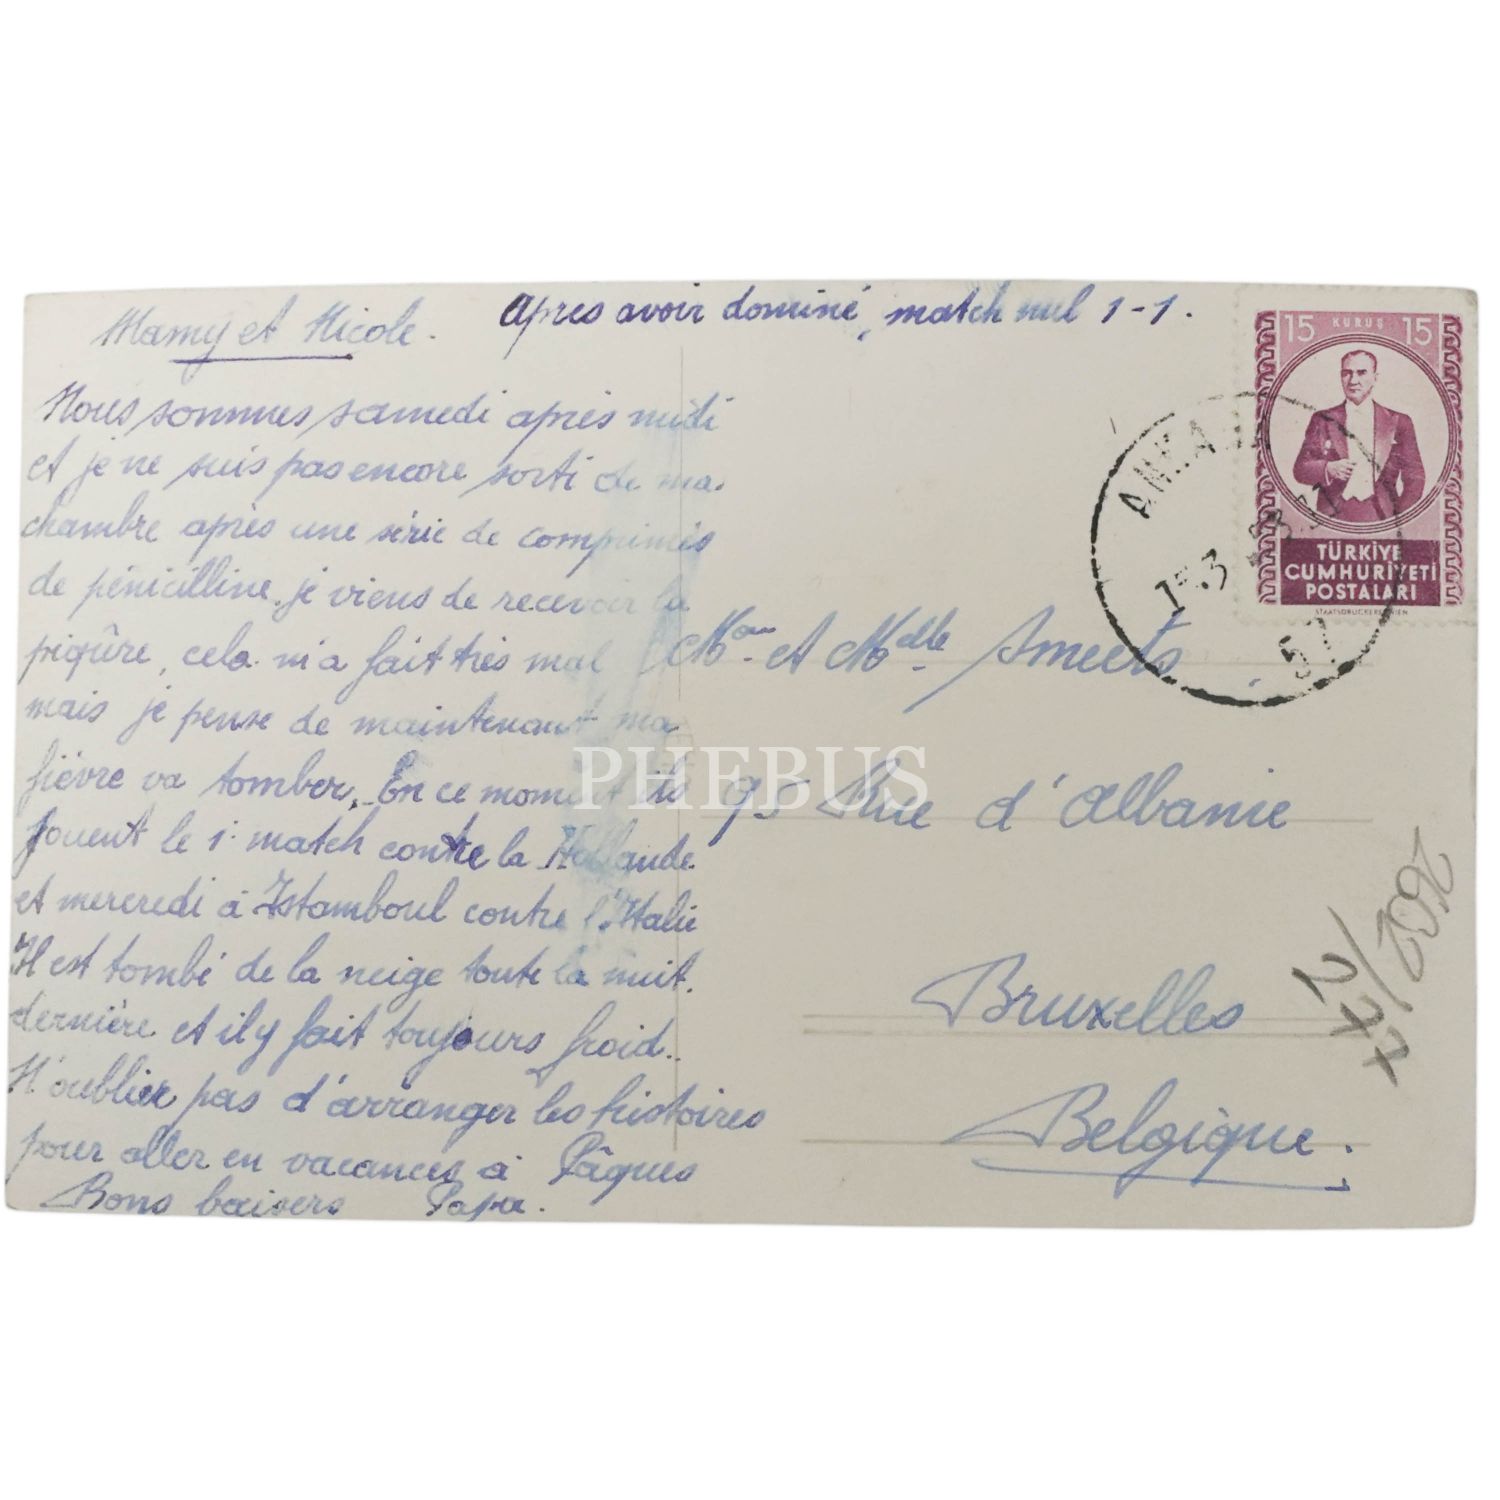 Mamy et Nicole.
Apres avoir dominé, match nul 1-1.
Nous sommes samedi après midi
et je ne suis pas encore sorti de ma
chambre après une série de comprimés
de pénicilline, je viens de recevoir la
piqûre, cela m'a fait très mal
mais je pense de maintenant ma
fièvre va tomber. En ce moment ils
jouent le 1. match contre la Hollande
et mercredi à Istamboul contre l'Italie
Il est tombé de la neige toute la nuit.
dernière et il y fait toujours froid..
N'oublier pas d'arranger les histoires
pour aller en vacances à Pâques
Bons baisers Papa.
15 KURUŞ 15
TÜRKİYE
CUMHURİYETİ
POSTALARI
STAATSDRUCKEREI WIEN
ANKARA
57
Mme. et Melle. Smeets
95 Rue d'Albanie
Bruxelles
Belgique.
PHEBUS